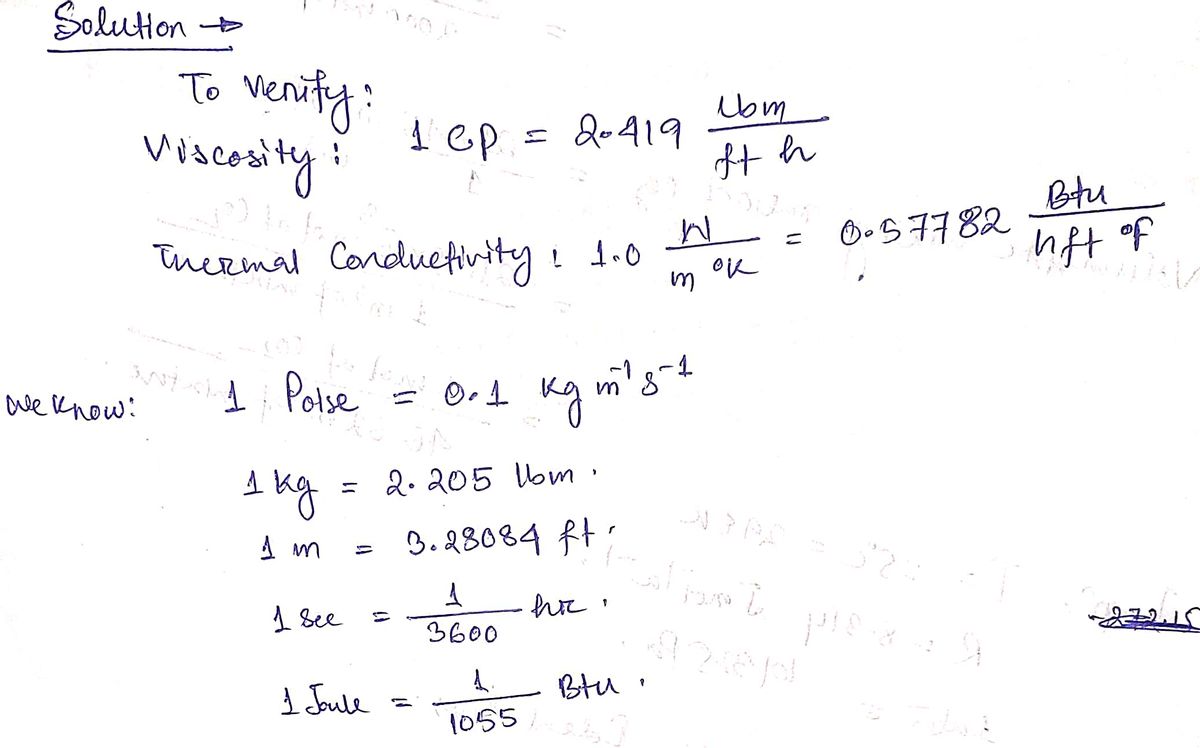 Solution →
To Verify:
Viscosity: 1 CP = 2.419 lbm / ft h
Thermal Conductivity: 1.0 W / m °K = 0.57782 Btu / h ft °F
We Know: 1 Poise = 0.1 kg m⁻¹ s⁻¹
1 kg = 2.205 lbm.
1 m = 3.28084 ft.
1 Sec = 1 / 3600 hr.
1 Joule = 1 / 1055 Btu.